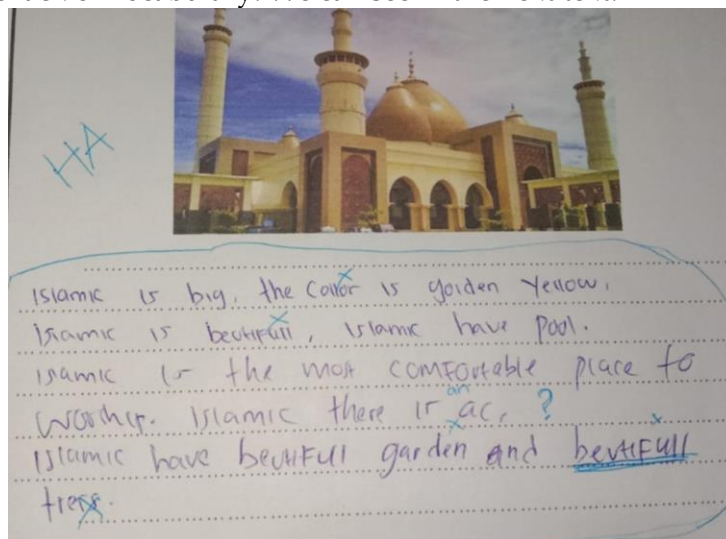 HA
Islamic is big, the Collor is golden Yellow,
Isamic is beutifull, Islamic have pool.
Isamic is the most comfortable place to
worship. Islamic there is an ac, ?
Islamic have beutifull garden and beutifull